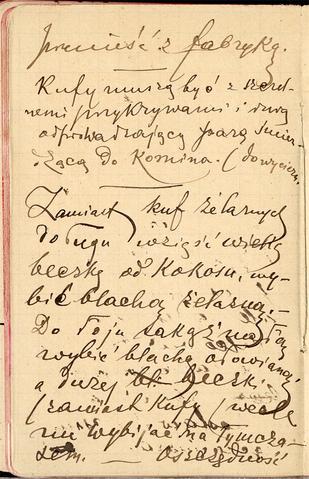 przenieść z fabryką.
Kufy muszą być z szczel-
nemi przykrywami i rurą
odprowadzającą parę śmier-
dzącą do Komina. (do wyciąg
Zamiast kuf żelaznych
do ługu wziąść wielką
beczkę od Kokosu, wy-
bić blachą żelazną,–
Do łoju także małą
wybić blachą ołowianą,
a dużej beczki
(zamiast Kufy) wcale
nie wybijać na tymcza-
sem. — Oszczędność